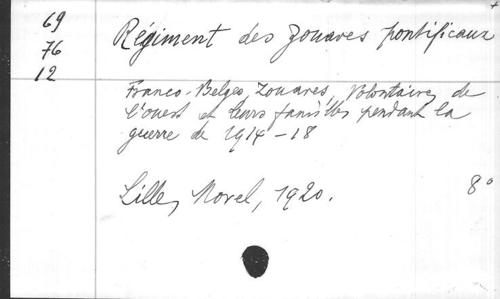 69
76
12
Régiment des Zouaves pontificaux
Franco-Belges, Zouaves, Volontaires de
l'ouest et leurs familles pendant la
guerre de 1914-18
Lille, Morel, 1920. 8°